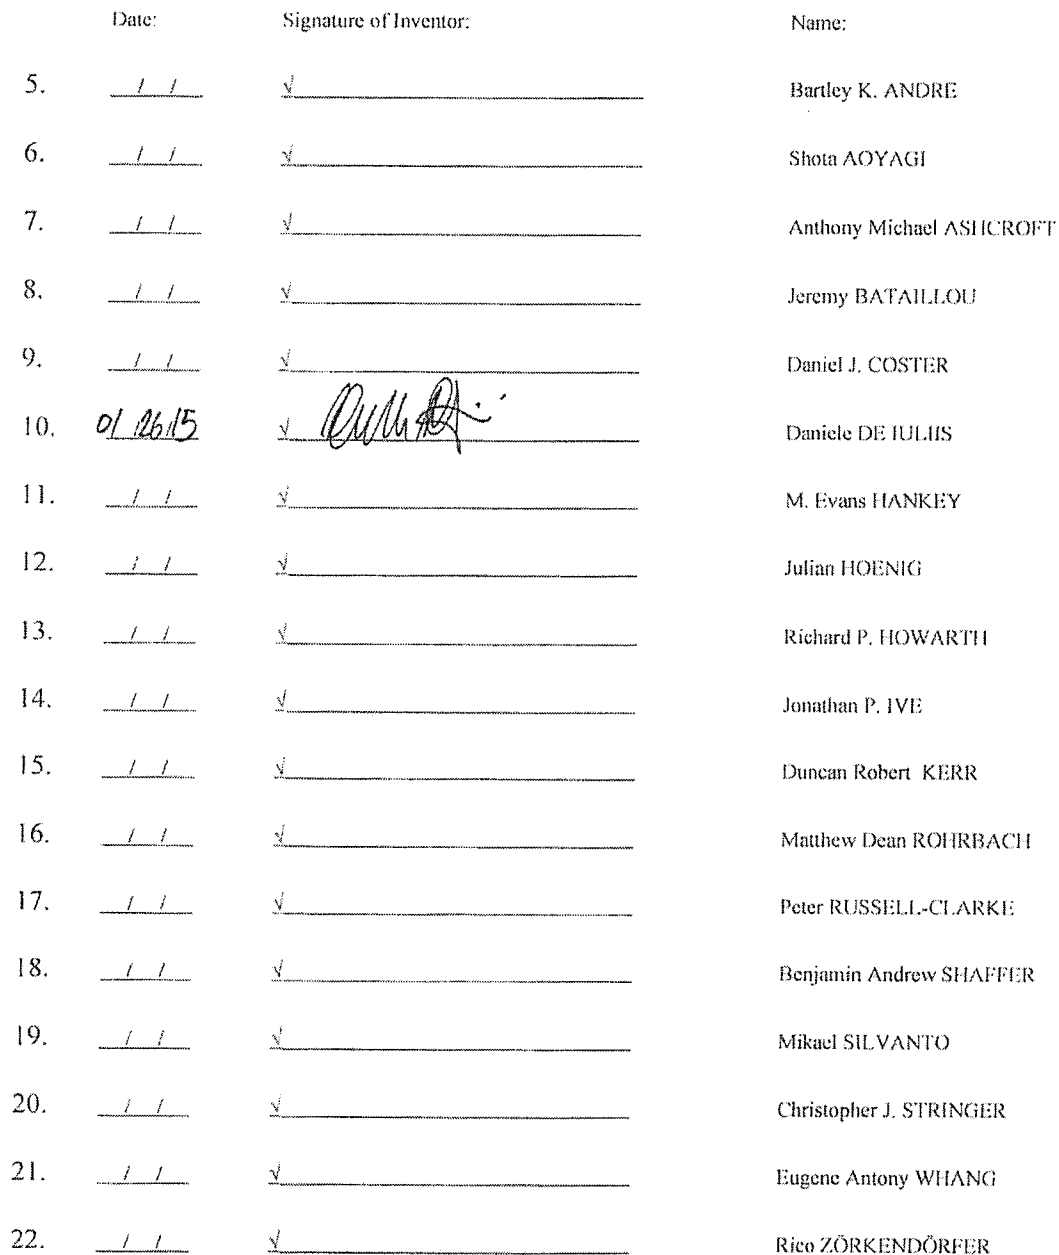 Date: Signature of Inventor: Name:
5. / / √ Bartley K. ANDRE
6. / / √ Shota AOYAGI
7. / / √ Anthony Michael ASHCROFT
8. / / √ Jeremy BATAILLOU
9. / / √ Daniel J. COSTER
10. 01/26/15 √ Daniele DE IULIIS
11. / / √ M. Evans HANKEY
12. / / √ Julian HOENIG
13. / / √ Richard P. HOWARTH
14. / / √ Jonathan P. IVE
15. / / √ Duncan Robert KERR
16. / / √ Matthew Dean ROHRBACH
17. / / √ Peter RUSSELL-CLARKE
18. / / √ Benjamin Andrew SHAFFER
19. / / √ Mikael SILVANTO
20. / / √ Christopher J. STRINGER
21. / / √ Eugene Antony WHANG
22. / / √ Rico ZÖRKENDÖRFER